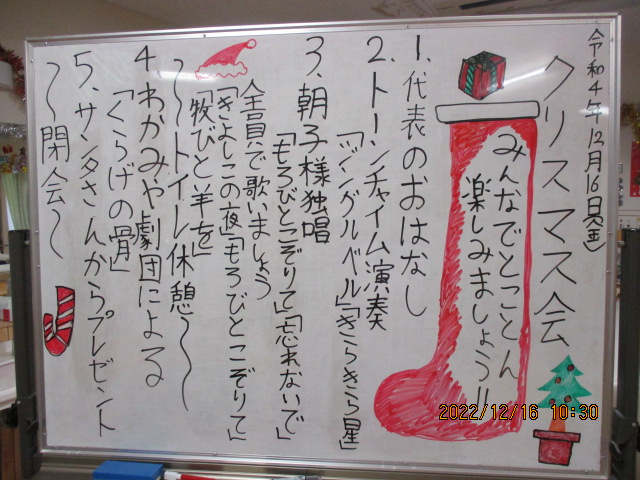 令和4年12月16日(金)
クリスマス会
みんなでとっことん
楽しみましょう!!
1、代表のおはなし
2、トーンチャイム演奏
「ジングルベル」「きらきら星」
3、朝子様独唱
「もろびとこぞりて」「忘れないで」
全員で歌いましょう
「きよしこの夜」「もろびとこぞりて」
「牧びと羊を」
～～トイレ休憩～～
4、わかみや劇団による
「くらげの骨」
5、サンタさんからプレゼント
～～閉会～～
2022/12/16 10:30